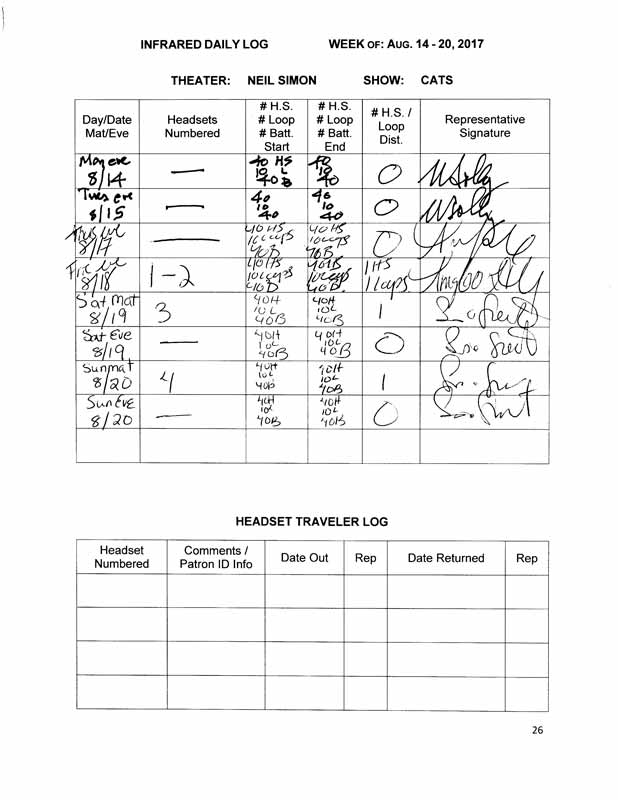 INFRARED DAILY LOG WEEK OF: AUG. 14 - 20, 2017
THEATER: NEIL SIMON SHOW: CATS
Day/Date Mat/Eve Headsets Numbered # H.S. # Loop # Batt. Start # H.S. # Loop # Batt. End # H.S. / Loop Dist. Representative Signature
Mon eve 8/14 — 40 HS 10 L 40 B 40 10 40 0
Tues eve 8/15 — 40 10 40 40 10 40 0
8/17 — 40 HS 10 loops 40B 40 HS 10 loops 40B 0
Fri eve 8/18 1-2 40 HS 10 loops 40B 40 HS 10 loops 40B 1 HS 1 loops
Sat mat 8/19 3 40H 10L 40B 40H 10L 40B 1
Sat Eve 8/19 — 40H 10L 40B 40H 10L 40B 0
Sun mat 8/20 4 40H 10L 40B 40H 10L 40B 1
Sun Eve 8/20 — 40H 10L 40B 40H 10L 40B 0
HEADSET TRAVELER LOG
Headset Numbered Comments / Patron ID Info Date Out Rep Date Returned Rep
26